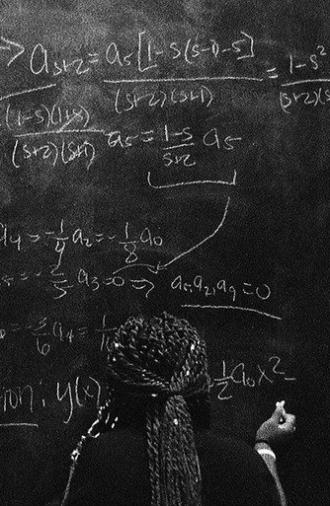 => a_{s+2} = a_s[1-s(s-1)-s] / (s+2)(s+1) = 1-s² / (s+2)(s
(1-s)(1+s) / (s+2)(s+1) a_s = 1-s / s+2 a_s
a_4 = -1/4 a_2 = -1/8 a_0
a_3 = 0 => a_5, a_7, a_9 = 0
-3/6 a_4 = 1/1
ion: y(x)
1/2 a_0 x² -